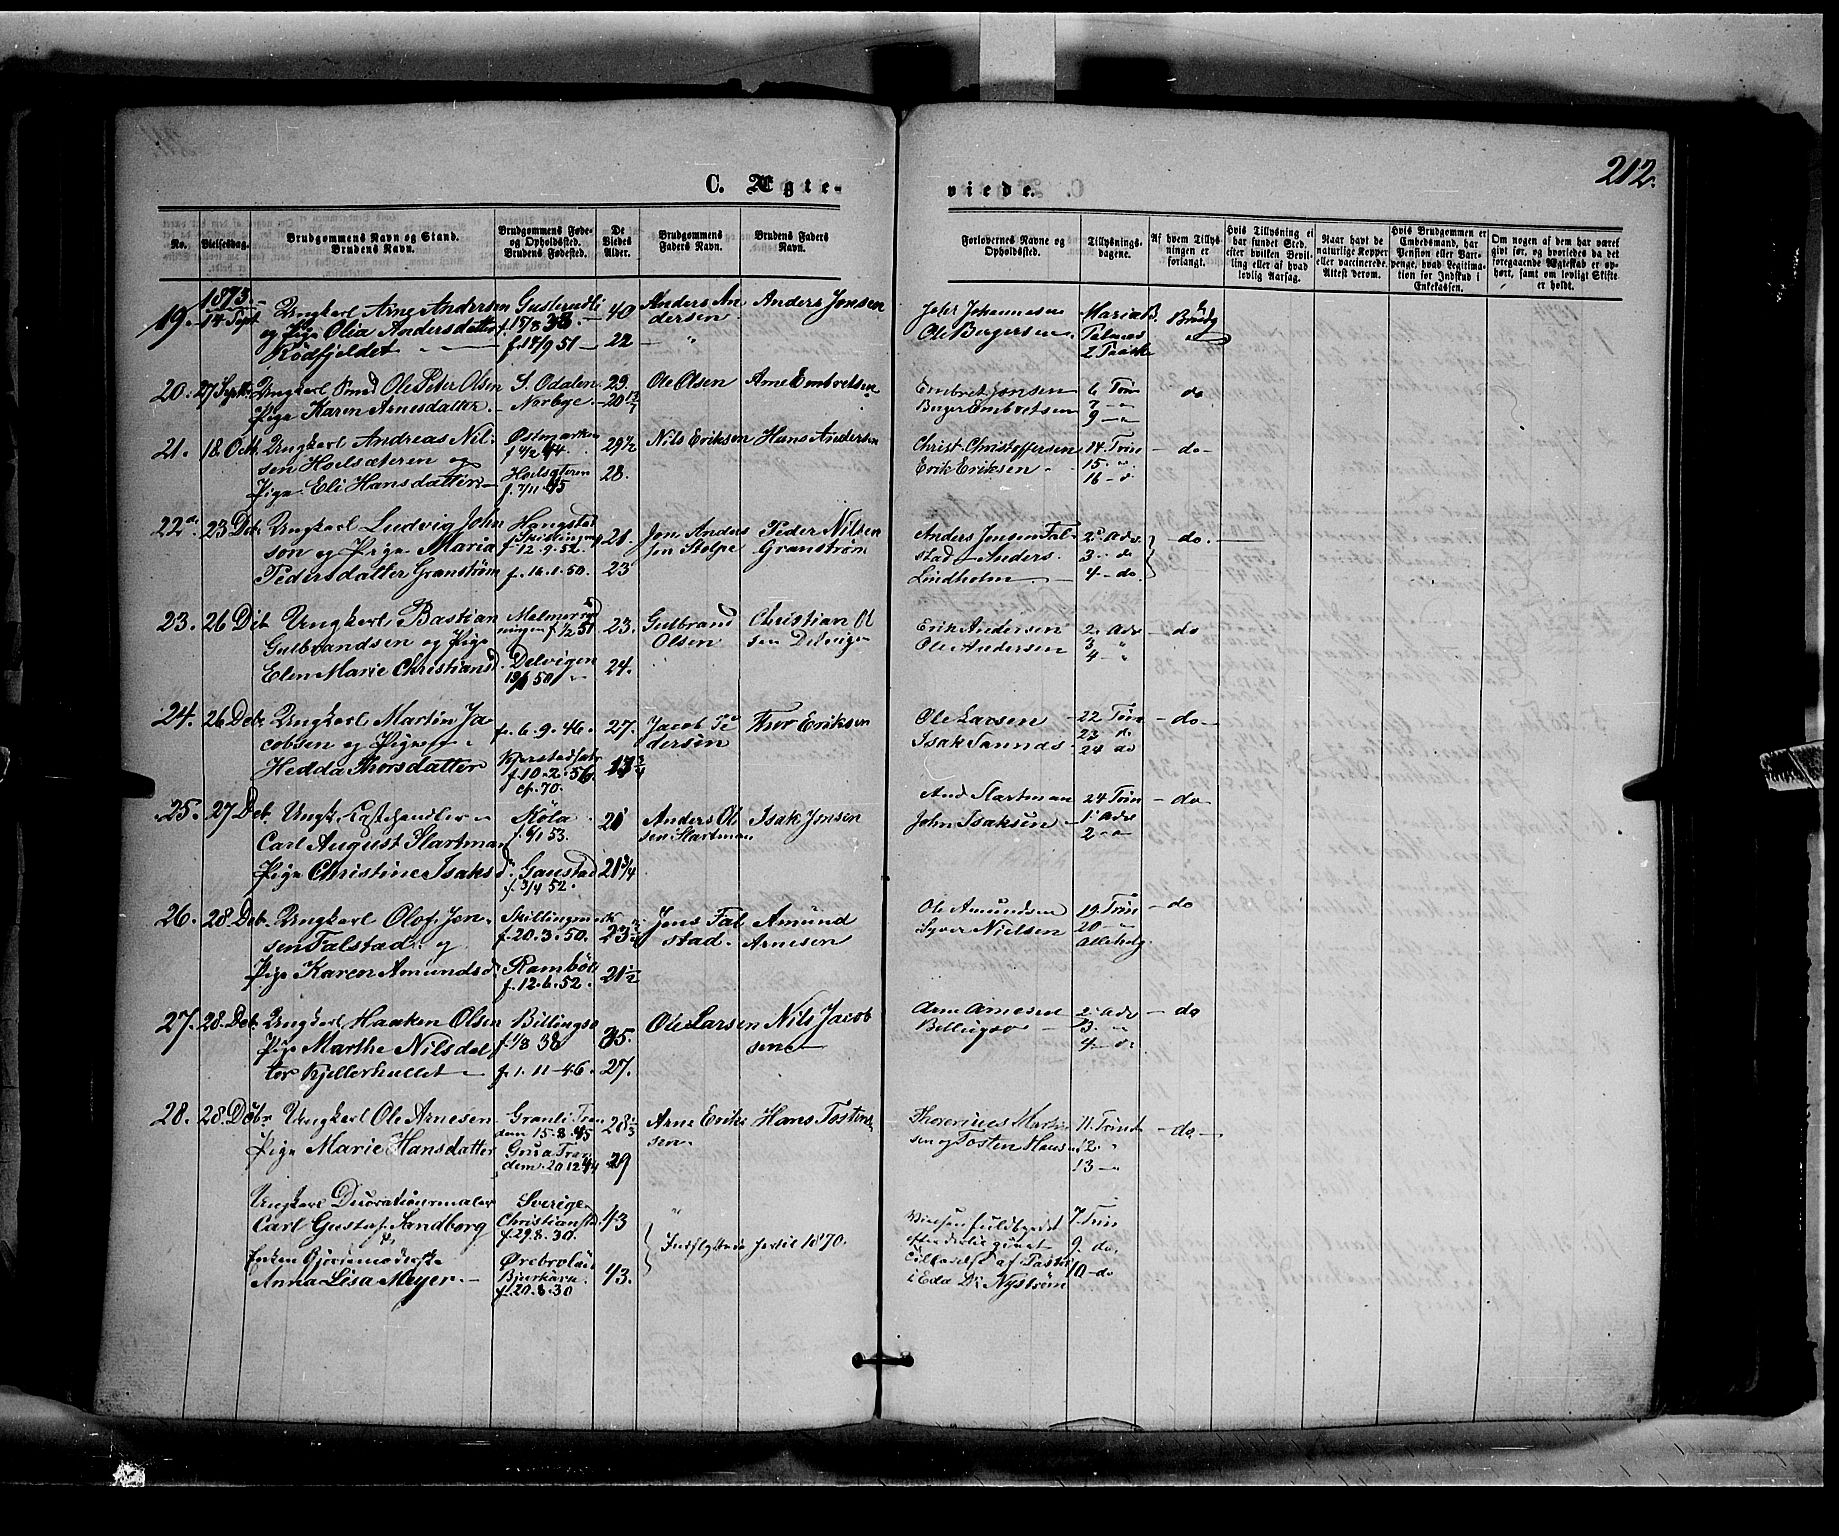 212.
C. Ægte-
viede.
No.
Vielsesdag.
Brudgommens Navn og Stand.
Brudens Navn.
Brudgommens Føde-
og Opholdssted.
Brudens Fødested.
De
Viedes
Alder.
Brudgommens
Faders Navn.
Brudens Faders
Navn.
Forlovernes Navne og
Opholdssted.
Tillysnings-
dagene.
Af hvem Tillys-
ningen er
forlangt.
Hvis Tillysning ei
har fundet Sted,
efter hvilken Bevil-
ling eller af hvad
lovlig Aarsag.
Naar havt de
naturlige Kopper
eller vaccinerede.
Attest derom.
Hvis Brudgommen er
Embedsmand, har
Pension eller Bar-
penge, hvad Legitima-
tion for Indskud i
Enkekassen.
Om nogen af dem har været
givt før, og hvorledes da det
foregaaende Ægteskab er op-
hørt, samt om lovligt Skifte
er holdt.
1873.
19. 14 Sept. Ungkarl Arne Andersen
og Pige Olia Andersdatter
Rödfjeldet
f. 17/8 33.
f. 14/9 51
40
22
Anders An
dersen
Anders Jonsen
Johannesen
Ole Bergersen
Maria B.
2 Faste
20. 27 Sept. Ungkarl Smed Ole Peter Olsen
Pige Karen Arnesdatter.
S. Odalen
Norbye.
29.
20
Ole Olsen
Arne Embretsen
Embret Jonsen
Berger Embretsen
6 Trin
7 - "
9 - "
do
21. 18 Oct. Ungkarl Andreas Nil-
sen Hoelsæteren og
Pige Eli Hansdatter
Østmarken
Hoelsæteren
f. 7/11 45
29 1/2
28.
Nils Eriksen
Hans Andersen
Christ. Christoffersen
Erik Eriksen
14 Trin
15 "
16 - d
do
22 23 Deb. Ungkarl Ludvig John
son og Pige Maria
Pedersdatter Granstrøm
f. 12. 9. 52.
f. 16. 1. 50.
21.
23
Jon Anders
sen Stolpe
Peder Nilsen
Granstrøm
Anders Jensen Fal-
stad - Anders
Lindholm
2 Adv.
3 - do
4 - do.
do.
23. 26 Deb Ungkarl Bastian
Gulbrandsen og Pige
Elen Marie Christiansd.
Delvigen
23.
24.
Gulbrand
Olsen
Christian Ol
sen Delvigen
Erik Andersen
Ole Andersen
2. Adv
3 "
4 - "
do
24. 26 Deb. Ungkarl Martin Ja-
cobsen og Pige
Hedda Thorsdatter
f. 6. 9. 46.
f. 10. 2. 56
cf. 70.
27.
17 3/4
Jacob Pe
dersen
Thor Eriksen
Ole Larsen
Isak Sannæs
22 Trin
23 d
24 do
do
25. 27 Deb. Ungk. Handler
Carl August Slartman
Pige Christine Isaksd.
Köla
f. 6/1 53.
Gaustad
f. 3/4 52.
21
21 3/4
Anders Ol
sen Slartman
Isak Jensen
And Slartman
John Isaksen
24 Trin
1 Adv
2 - "
do
26. 28. Deb. Ungkarl Olof Jen-
sen Falstad og
Pige Karen Amundsd.
Skillingmark
f. 20. 3. 50.
f. 12. 6. 52.
21 1/2
Jens Fal
stad.
Amund
Arnesen
Ole Amundsen
Syver Nielsen
19 Trin
20 - "
Allehelg.
do
27. 28. Deb. Ungkarl Haaken Olsen
Pige Marthe Nilsdat-
ter Kjellerhullet
Billingso
f. 1/8 38
f. 1. 11 - 46.
35.
27.
Ole Larsen
Nils Jacob
sen
Arne Arnesen
Billingso
2. Adv
3. "
4 - d
do
28. 28. Debr. Ungkarl Ole Arnesen
Pige Marie Hansdatter
15 - 8. 45
20 12 44
28 1/3
29
Arne Erik
sen.
Hans Tosten
Thorennes Martin
sen og Tosten Hans
11. Trinit
12 - "
13 - "
do
Ungkarl Decorationsmaler
Carl Gustaf Sandborg
Enken
Anna Lisa Meyer.
Sverige
Christianstd
f. 29. 8. 30.
Ørebrolän
f. 20. 8. 30
43
43.
Indflyttede hertil 1870.
Vielsen fuldbyrdet
Tilladelse af Pastor
i Eda Dr. Nyström
7. Trin
9. do.
10 - do